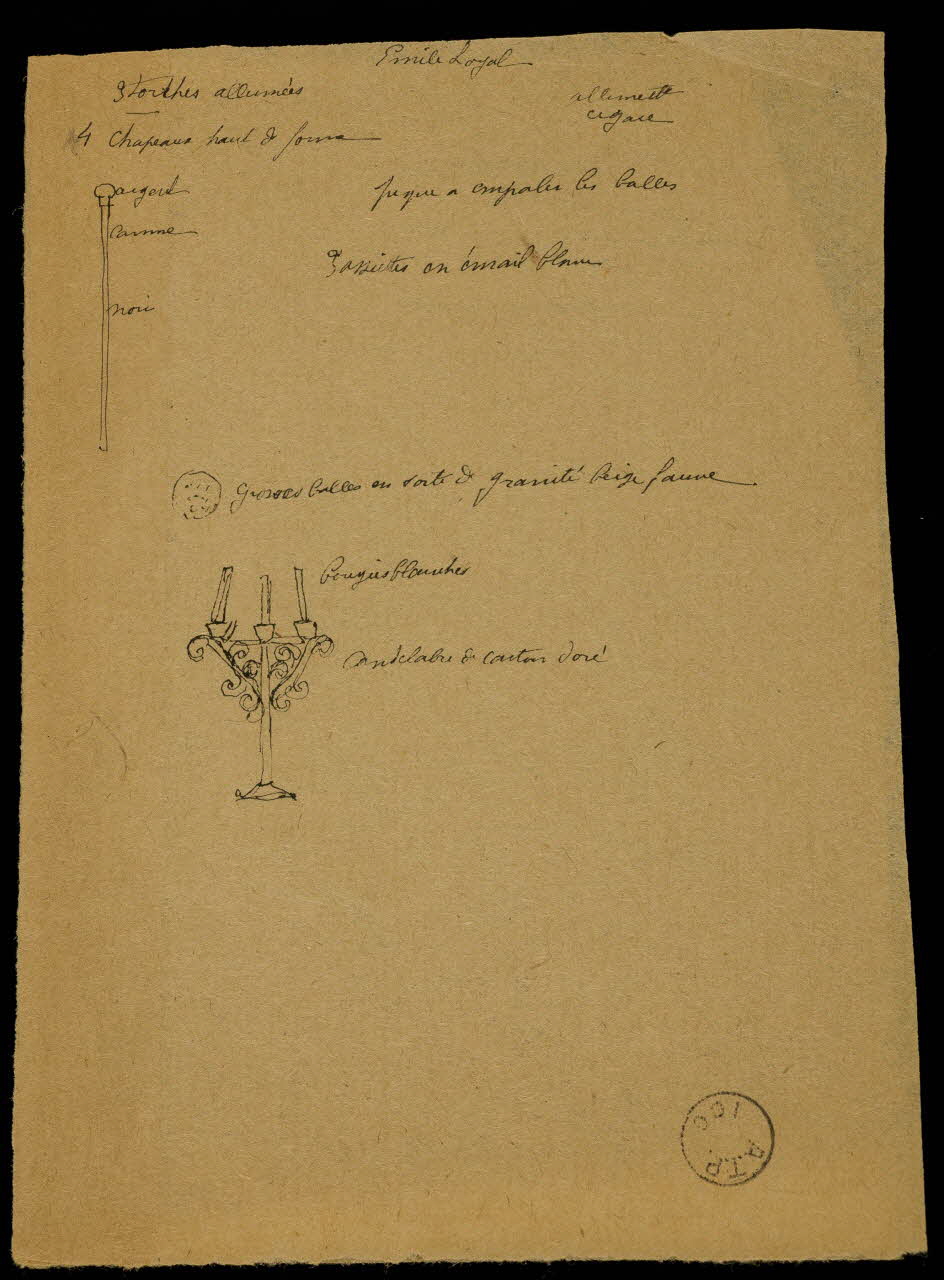 Emile Loyal
3 torches allumées
allumette
cigare
4 chapeaux haut de forme
argent
canne
noir
a empaler les balles
3 assiettes en émail blanc
grosses balles en sorte de granité beige fauve
bougies blanches
candélabre de carton doré
ATP